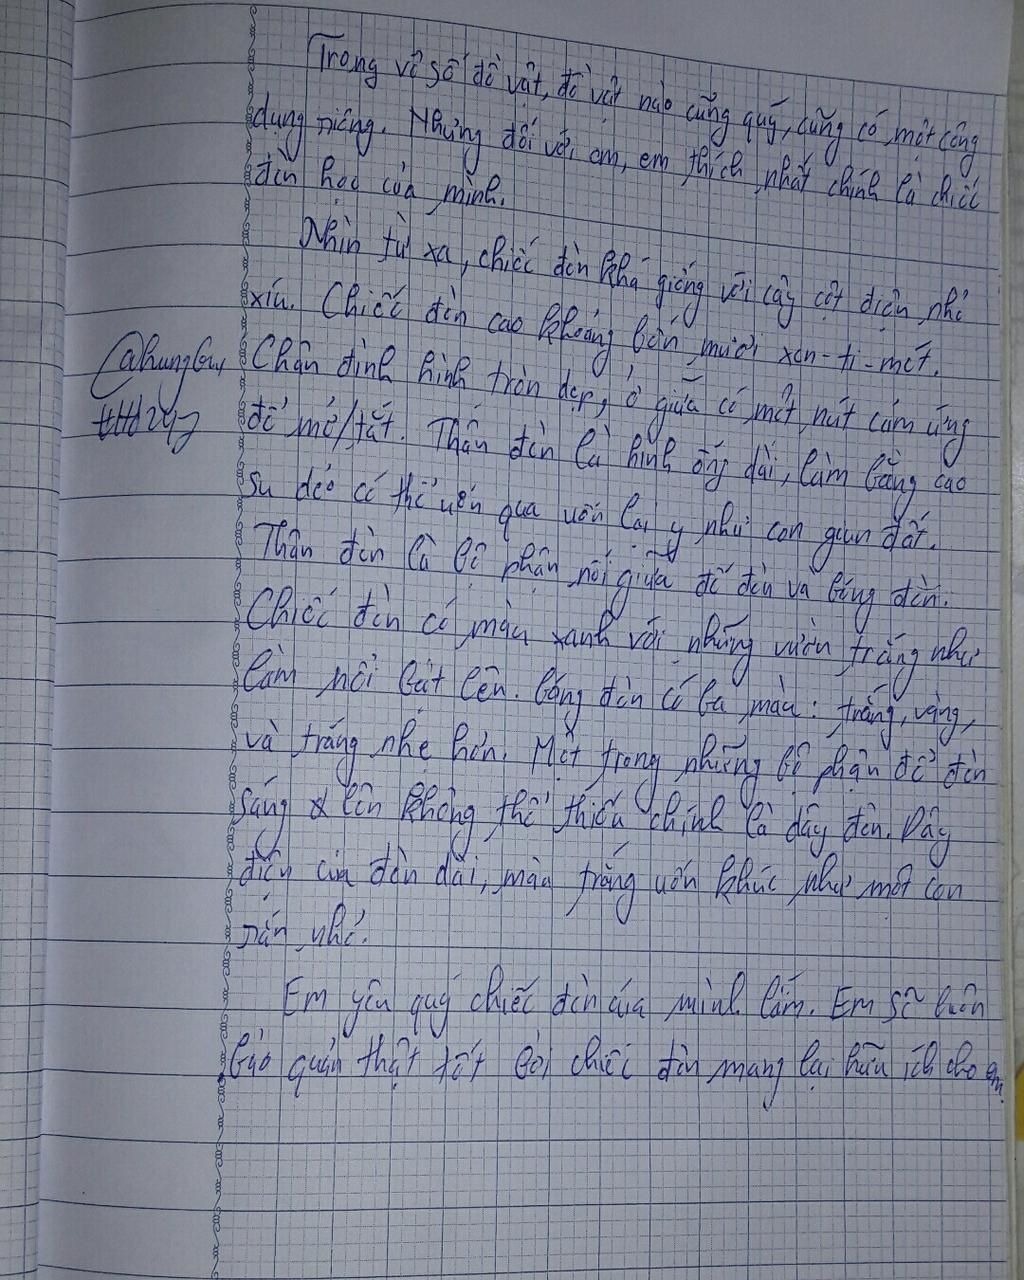 Trong vô số đồ vật, đồ vật nào cũng quý, cũng có một công
dụng riêng. Nhưng đối với em, em thích nhất chính là chiếc
đèn học của mình.
Nhìn từ xa, chiếc đèn khá giống với cây cột điện nhỏ
xíu. Chiếc đèn cao khoảng bốn mươi xen-ti-mét.
Chân đình hình tròn dẹp, ở giữa có một nút cảm ứng
để mở/tắt. Thân đèn là hình ống dài, làm bằng cao
su dẻo có thể uốn qua uốn lại y như con giun đất.
Thân đèn là bộ phận nối giữa đế đèn và bóng đèn.
Chiếc đèn có màu xanh với những viền trắng như
làm nổi bật lên. bóng đèn có ba màu: trắng, vàng,
và trắng nhẹ hơn. Một trong những bộ phận để đèn
sáng lên không thể thiếu chính là dây đèn. Dây
điện của đèn dài, màu trắng uốn khúc như một con
rắn nhỏ.
Em yêu quý chiếc đèn của mình lắm. Em sẽ luôn
bảo quản thật tốt bởi chiếc đèn mang lại hữu ích cho em.